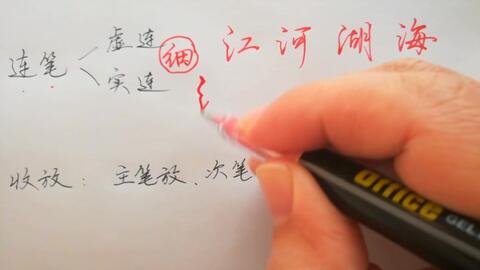 连笔 虚连 细 江河湖海
实连
收放：主笔放、次笔
office GEL